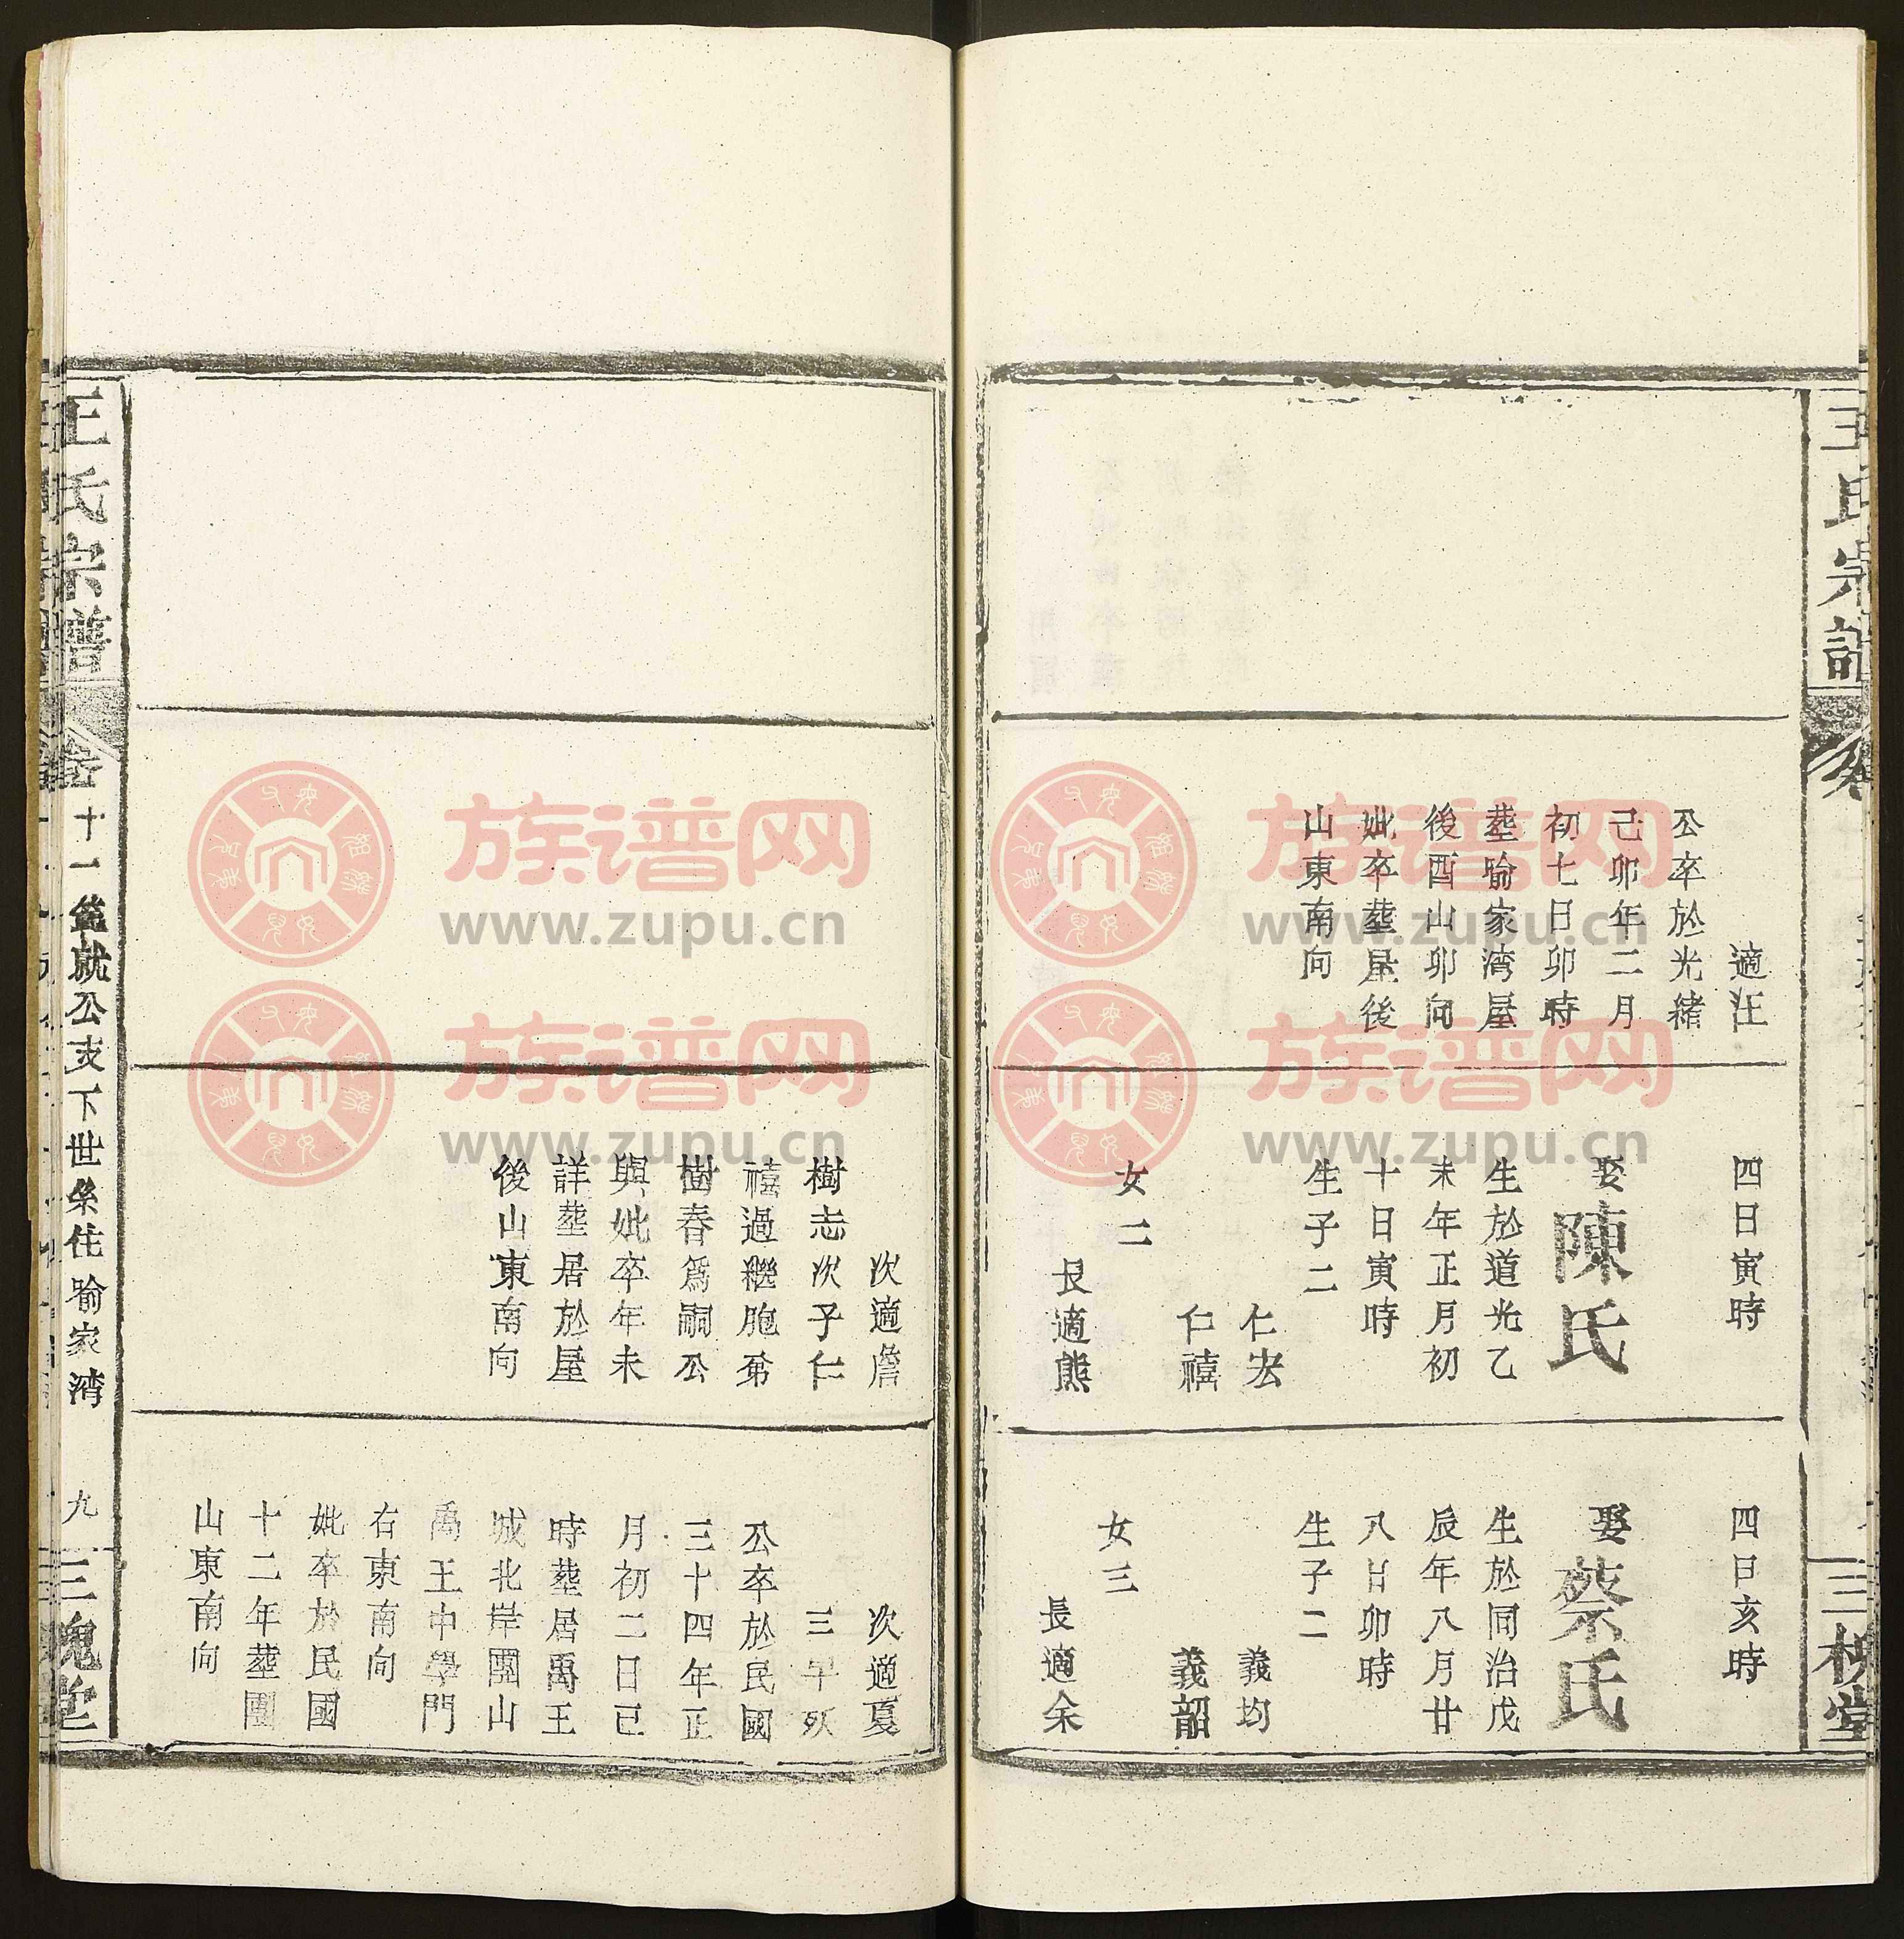 王氏宗譜
三槐堂
適汪
公卒於光緒
己卯年二月
初七日卯時
塟喻家湾屋
後酉山卯向
妣卒塟屋後
山東南向
四日寅時
娶陳氏
生於道光乙
未年正月初
十日寅時
生子二
仁宏
仁禧
女二
長適熊
四日亥時
娶蔡氏
生於同治戊
辰年八月廿
八日卯時
生子二
義均
義韶
女三
長適余
次適詹
樹志次子仁
禧過繼胞弟
樹春爲嗣公
與妣卒年未
詳塟居於屋
後山東南向
次適夏
三早殁
公卒於民國
三十四年正
月初二日已
時塟居禹王
城北岸團山
禹王中學門
右東南向
妣卒於民國
十二年塟團
山東南向
王氏宗譜
十一 就公支下世系住喻家湾
九
三槐堂
族谱网
www.zupu.cn
族谱网
www.zupu.cn
族谱网
www.zupu.cn
族谱网
www.zupu.cn